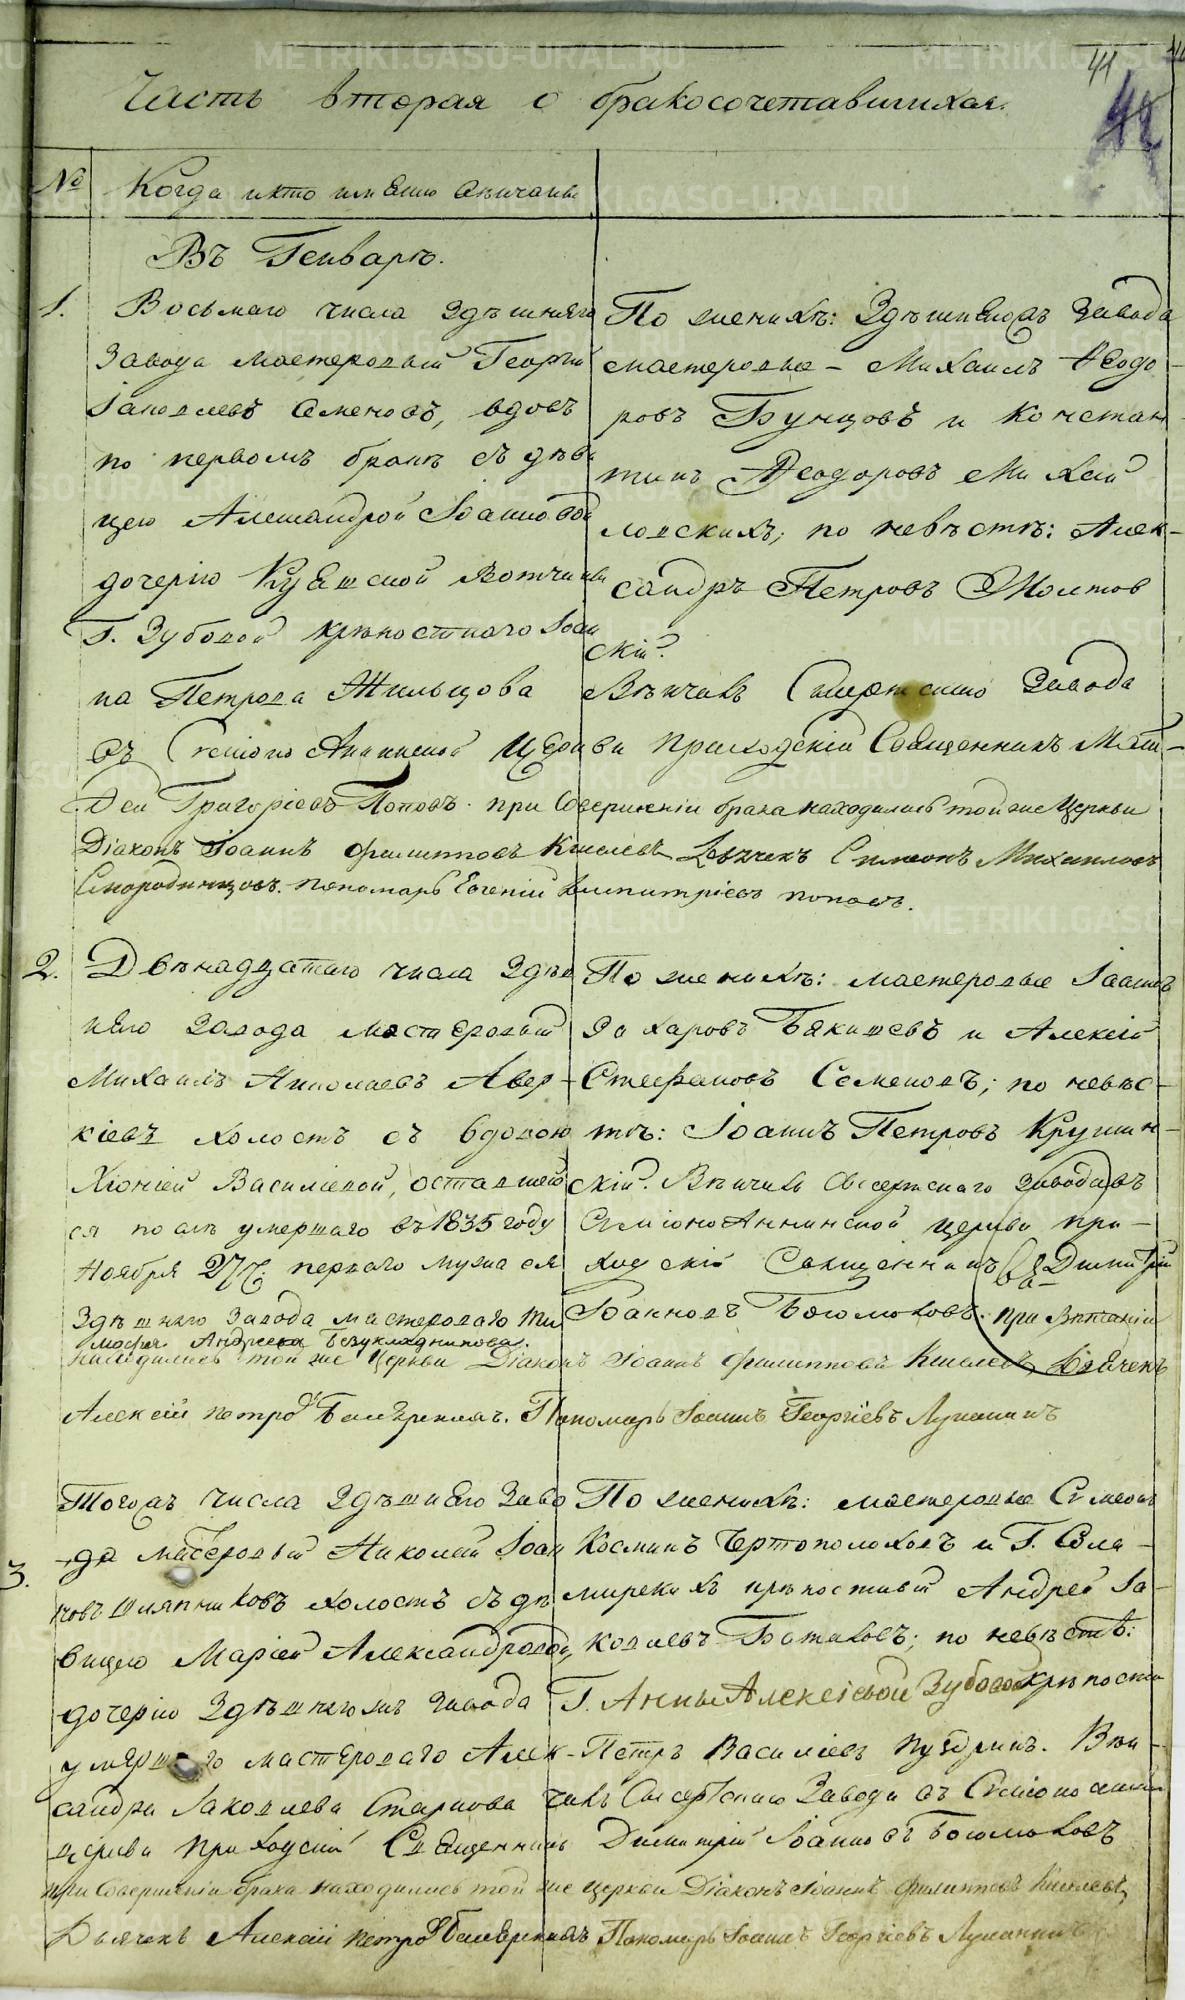 41
42
Часть вторая о бракосочетавшихся.
№ Когда и кто именно венчаны
Въ Генваръ.
1. Восьмаго числа здѣшняго
завода мастеровый Георгій
Іаковлевъ Семеновъ, вдовъ
по первомъ бракѣ съ дѣви
цею Александрой Іоанновой
дочерію Кунгинской вотчины
Г. Зубовой крѣпостнаго Іоан
на Петрова Жильцова
По женихѣ: Здѣшнегожъ завода
мастеровые - Михаилъ Ѳеодо-
ровъ Бунцовъ и Констан-
тинъ Ѳеодоровъ Михай
ловскихъ; по невѣстѣ: Алек-
сандръ Петровъ Жолтов
скій.
Вѣнчалъ Сысертскаго завода
въ Симеоно Аннинской церкви приходскій Священникъ Мат-
ѳей Григоріевъ Поповъ. при совершеніи брака находились той же Церкви
Діаконъ Іоаннъ Филипповъ Киселевъ Дьячекъ Симеонъ Михаиловъ
Смородинцовъ. пономарь Евгеній Димитріевъ поповъ.
2. Двѣнадцатаго числа здѣш
няго завода мастеровый
Михаилъ Николаевъ Авер-
кіевъ холостъ съ вдовою
Хіоніей Василіевой, оставшей
ся послѣ умершаго въ 1835 году
Ноября 27го перваго мужа ея
Здѣшняго завода мастероваго Ти
мофея Андреева Безукладникова.
По женихѣ: мастеровые Іоаннъ
Захаровъ Бякишевъ и Алексій
Стефановъ Семеновъ; по невѣс-
тѣ: Іоаннъ Петровъ Крушин-
скій. Вѣнчалъ Сысертскаго завода въ
Симеоно Аннинской церкви при-
ходскій Священникъ Димитрій
Іоанновъ Богомоловъ. при вѣнчаніи
находились той же Церкви Діаконъ Іоаннъ Филипповъ Киселевъ, Дьячекъ
Алексій Петровъ Пономарь Іоаннъ Георгіевъ Луканинъ
3. Тогожъ числа здѣшняго заво
да мастеровый Николай Іоан
новъ Шляпниковъ холостъ съ дѣ
вицею Маріей Александровой,
дочерію здѣшнегожъ завода
умершаго мастероваго Алек-
сандра Іаковлева Старкова
По женихѣ: мастеровые Симеонъ
Косминъ Чертополоховъ и Г. Соло-
мирскихъ крѣпостный Андрей Іа-
ковлевъ Боталовъ; по невѣстѣ:
Г. Анны Алексіевой Зубовой крѣпостн
Петръ Василіевъ Вѣн-
чалъ Сысертскаго завода въ Симеоно анни
церкви приходскій Священникъ Димитрій Іоанновъ Богомоловъ
при совершеніи брака находились той же церкви Діаконъ Іоаннъ Филипповъ Киселевъ,
Дьячекъ Алексій Петровъ Пономарь Іоаннъ Георгіевъ Луканинъ
METRIKI.GASO-URAL.RU